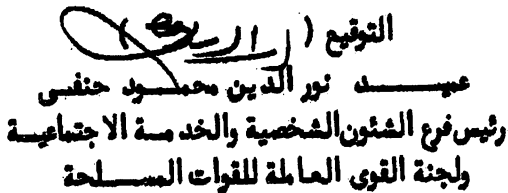 التوقيع ( )
عميــــد نور الدين محمــود حنفى
رئيس فرع الشئون الشخصية والخدمــة الاجتماعيــة
ولجنة القوى العاملة للقوات المســـلحة